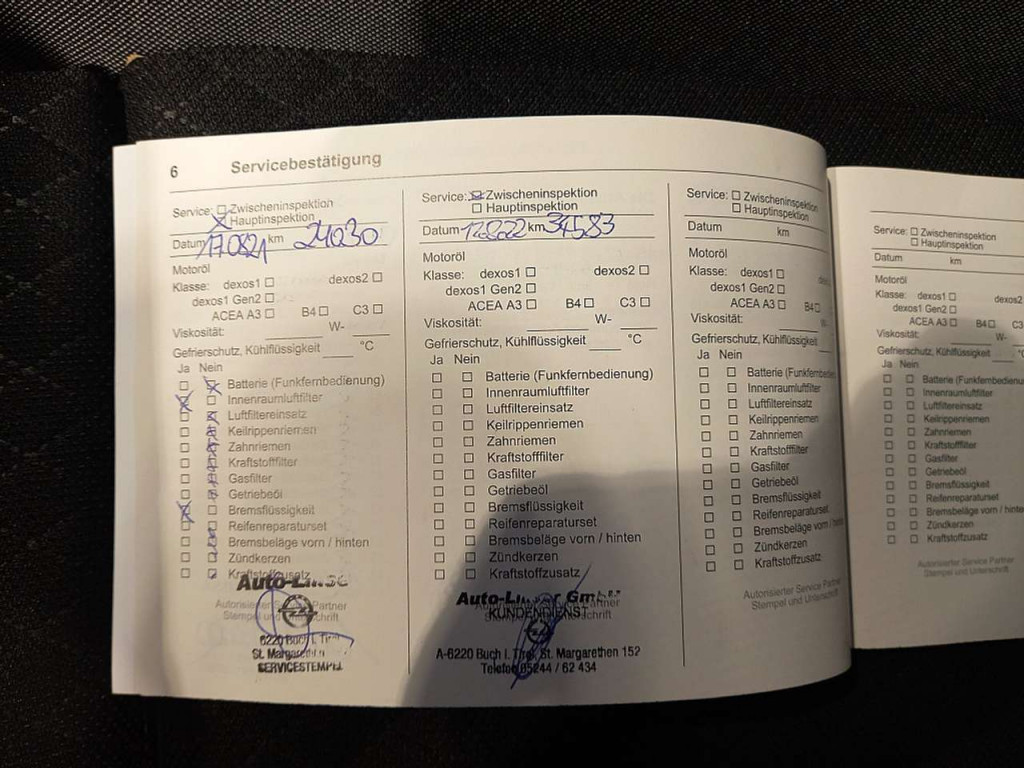 6 Servicebestätigung
Service: ☐ Zwischeninspektion
☒ Hauptinspektion
Datum 170821 km 24030
Motoröl
Klasse: dexos1 ☐ dexos2 ☐
dexos1 Gen2 ☐
ACEA A3 ☐ B4 ☐ C3 ☐
Viskosität: W-
Gefrierschutz, Kühlflüssigkeit °C
Ja Nein
☐ ☒ Batterie (Funkfernbedienung)
☒ ☐ Innenraumluftfilter
☐ ☒ Luftfiltereinsatz
☐ ☒ Keilrippenriemen
☐ ☒ Zahnriemen
☐ ☒ Kraftstofffilter
☐ ☒ Gasfilter
☐ ☒ Getriebeöl
☒ ☐ Bremsflüssigkeit
☐ ☐ Reifenreparaturset
☐ ☒ Bremsbeläge vorn / hinten
☐ ☐ Zündkerzen
☐ ☐ Kraftstoffzusatz
Autorisierter Service Partner
Stempel und Unterschrift
6220 Buch i. Tirol
St. Margarethen
SERVICESTEMPEL
Service: ☒ Zwischeninspektion
☐ Hauptinspektion
Datum km 34583
Motoröl
Klasse: dexos1 ☐ dexos2 ☐
dexos1 Gen2 ☐
ACEA A3 ☐ B4 ☐ C3 ☐
Viskosität: W-
Gefrierschutz, Kühlflüssigkeit °C
Ja Nein
☐ ☐ Batterie (Funkfernbedienung)
☐ ☐ Innenraumluftfilter
☐ ☐ Luftfiltereinsatz
☐ ☐ Keilrippenriemen
☐ ☐ Zahnriemen
☐ ☐ Kraftstofffilter
☐ ☐ Gasfilter
☐ ☐ Getriebeöl
☐ ☐ Bremsflüssigkeit
☐ ☐ Reifenreparaturset
☐ ☐ Bremsbeläge vorn / hinten
☐ ☐ Zündkerzen
☐ ☐ Kraftstoffzusatz
GmbH
KUNDENDIENST
A-6220 Buch i. Tirol, St. Margarethen 152
Telefon 05244 / 62 434
Service: ☐ Zwischeninspektion
☐ Hauptinspektion
Datum km
Motoröl
Klasse: dexos1 ☐
dexos1 Gen2 ☐
ACEA A3 ☐ B4 ☐
Viskosität: W-
Gefrierschutz, Kühlflüssigkeit
Ja Nein
☐ ☐ Batterie
☐ ☐ Innenraumluftfilter
☐ ☐ Luftfiltereinsatz
☐ ☐ Keilrippenriemen
☐ ☐ Zahnriemen
☐ ☐ Kraftstofffilter
☐ ☐ Gasfilter
☐ ☐ Getriebeöl
☐ ☐ Bremsflüssigkeit
☐ ☐ Reifenreparaturset
☐ ☐ Bremsbeläge vorn
☐ ☐ Zündkerzen
☐ ☐ Kraftstoffzusatz
Autorisierter Service Partner
Stempel und Unterschrift
Service: ☐ Zwischeninspektion
☐ Hauptinspektion
Datum km
Motoröl
Klasse: dexos1 ☐ dexos2
dexos1 Gen2 ☐
ACEA A3 ☐ B4 ☐ C3
Viskosität: W-
Gefrierschutz, Kühlflüssigkeit
Ja Nein
☐ ☐ Batterie
☐ ☐ Innenraumluftfilter
☐ ☐ Luftfiltereinsatz
☐ ☐ Keilrippenriemen
☐ ☐ Zahnriemen
☐ ☐ Kraftstofffilter
☐ ☐ Gasfilter
☐ ☐ Getriebeöl
☐ ☐ Bremsflüssigkeit
☐ ☐ Reifenreparaturset
☐ ☐ Bremsbeläge vorn / hinten
☐ ☐ Zündkerzen
☐ ☐ Kraftstoffzusatz
Autorisierter Service Partner
Stempel und Unterschrift